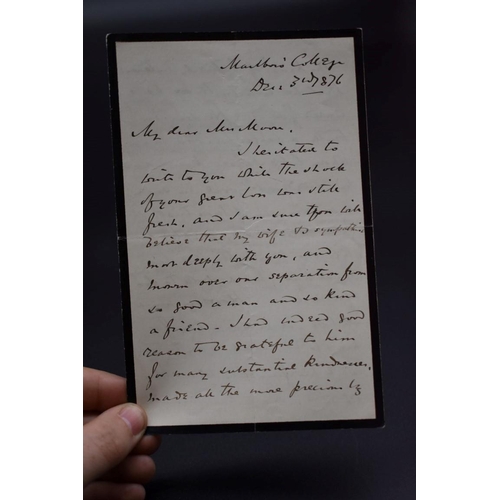 Marlboro' College
Dec: 3rd 1876
My dear Mrs Moore,
I hesitated to
write to you while the shock
of your great loss was still
fresh, and I am sure you will
believe that my wife & I sympathise
most deeply with you, and
mourn over our separation from
so good a man and so kind
a friend - I had indeed good
reason to be grateful to him
for many substantial kindnesses,
made all the more precious by